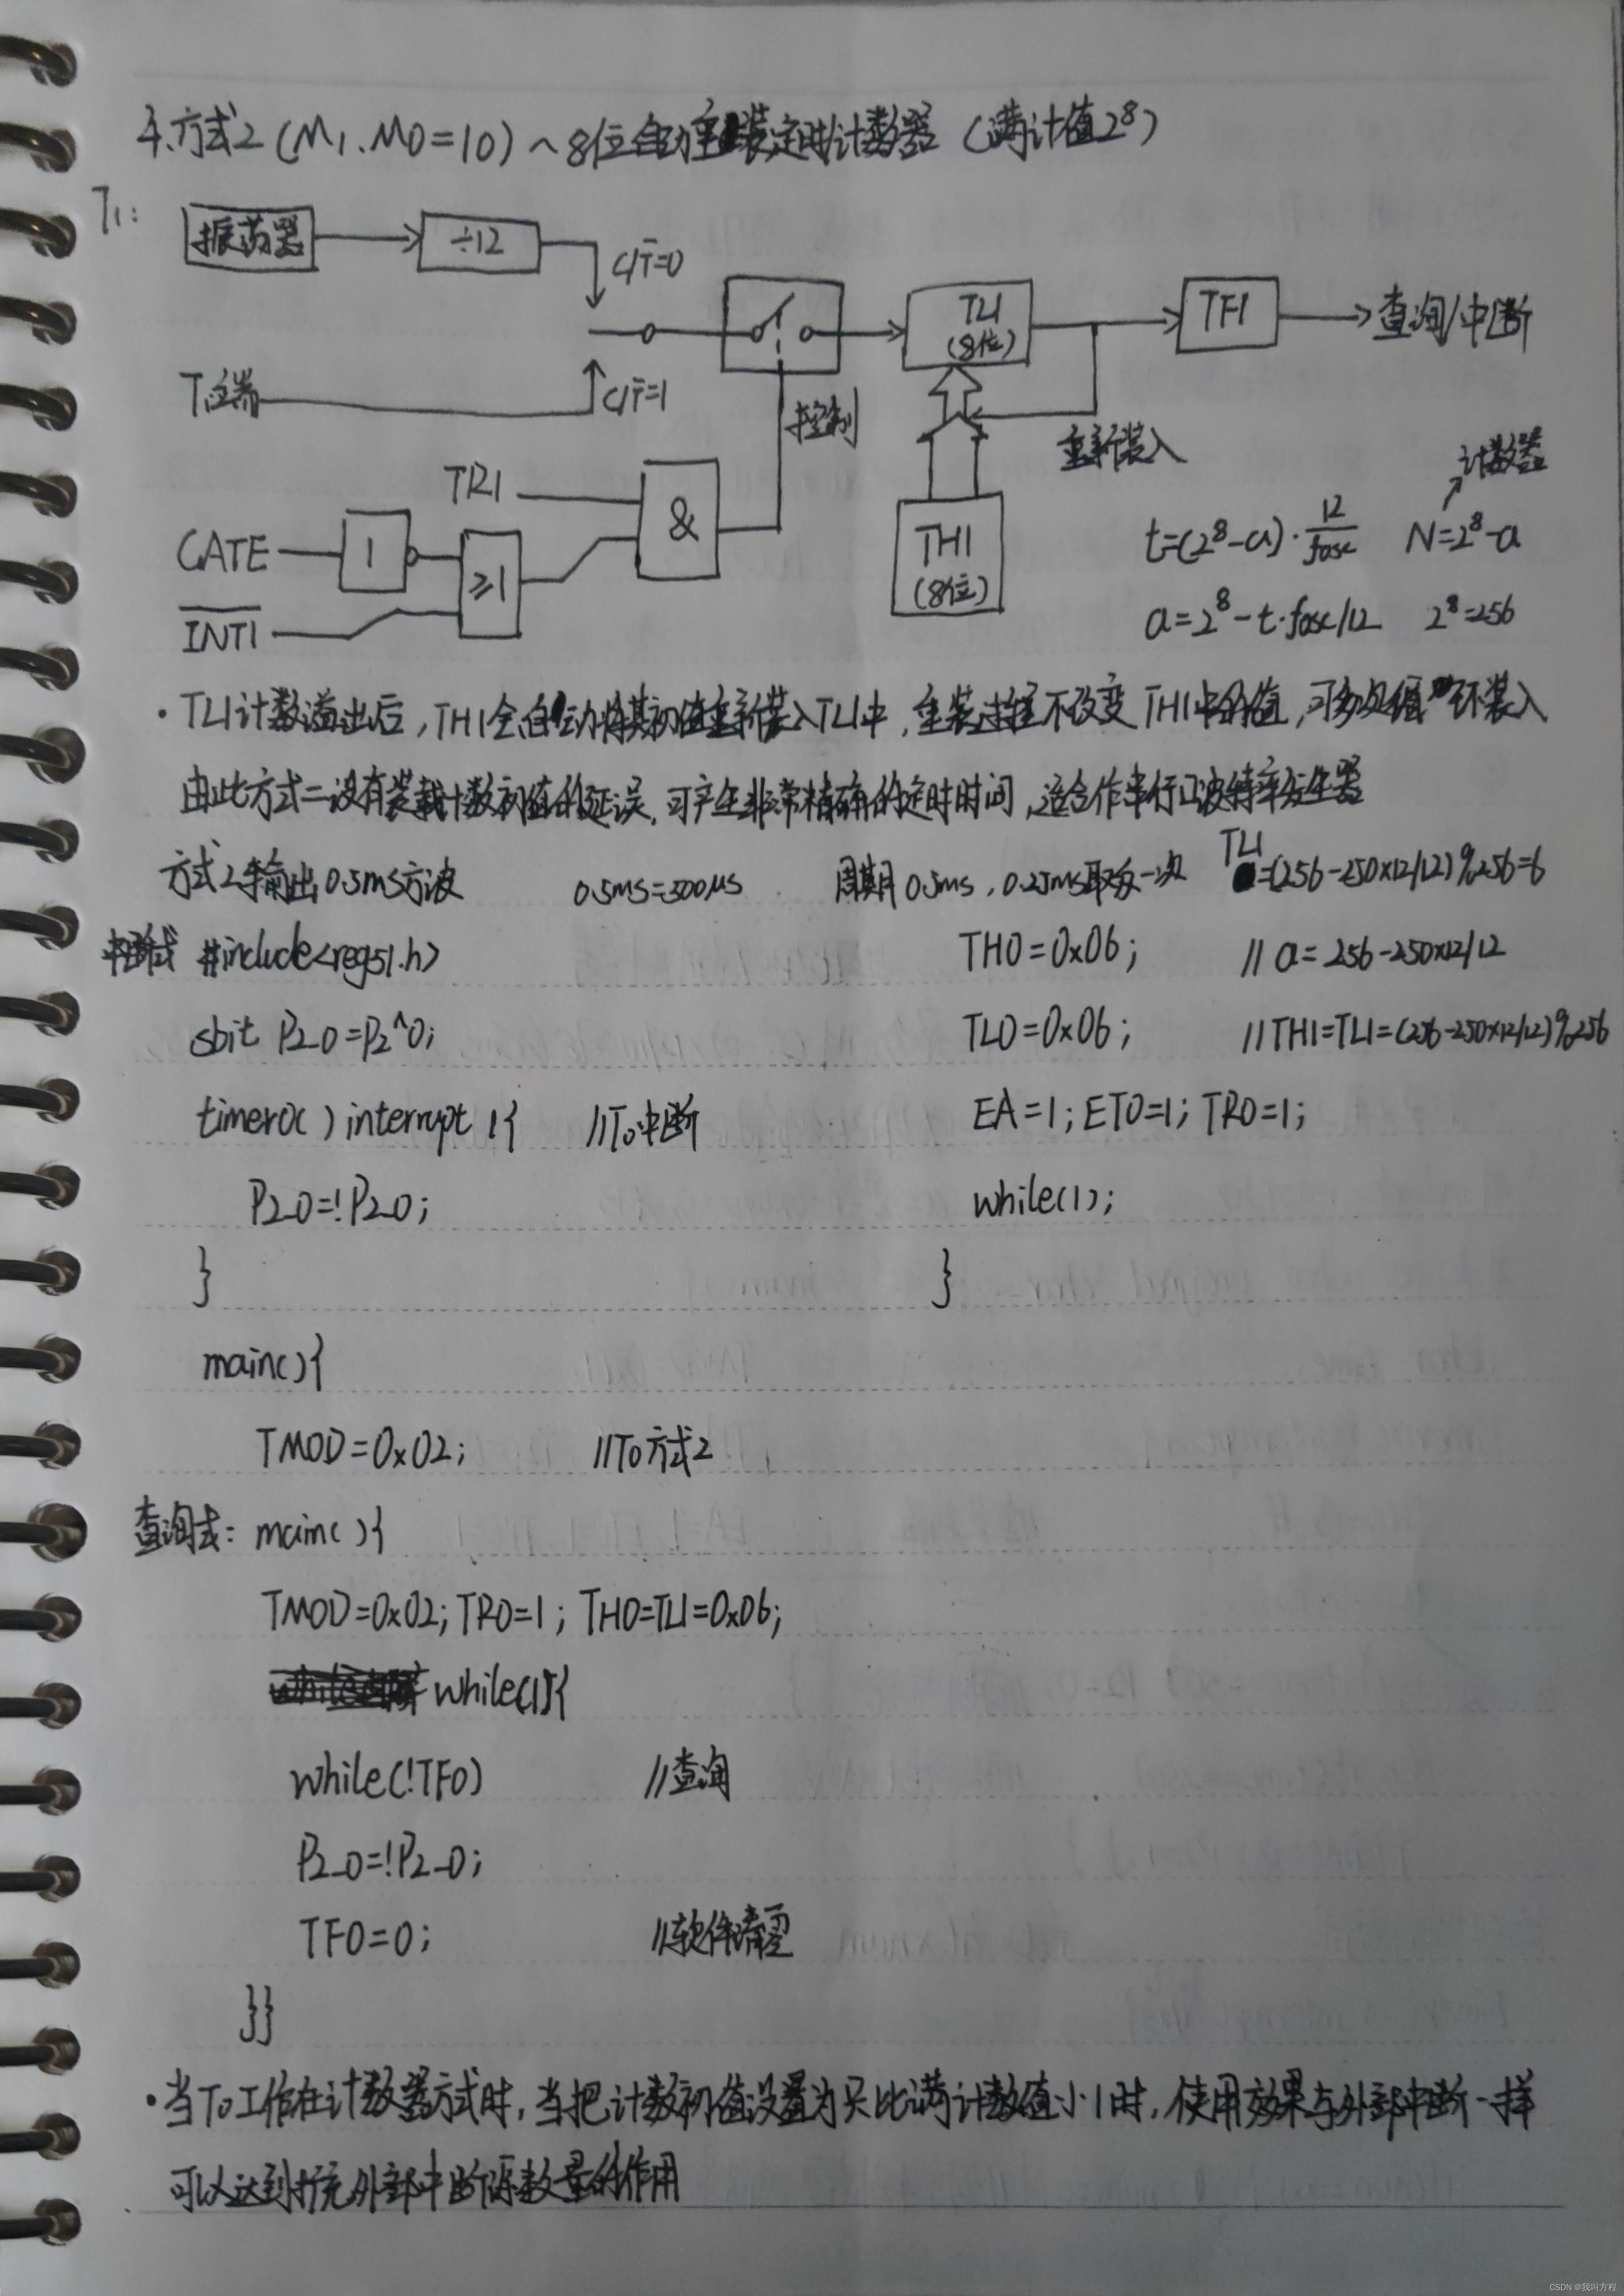 4.方式2(M1.M0=10)~8位自动重装定时计数器(满计值2⁸)
T1:
振荡器 ÷12 C/T̅=0
TL1 (8位) TF1 查询/中断
T1端 C/T̅=1
控制 重新装入
计数器
TR1 &
GATE 1 ≥1
TH1 (8位)
t=(2⁸-a)·12/fosc N=2⁸-a
I̅N̅T̅1̅
a=2⁸-t·fosc/12 2⁸=256
·TL1计数溢出后,TH1会自动将其初值重新装入TL1中,重装过程不改变TH1中的值,可多次循环装入
由此方式二没有装载计数初值的延误,可产生非常精确的定时时间,适合作串行口波特率发生器
方式2输出0.5ms方波 0.5ms=500μs 周期0.5ms,0.25ms取反一次 TL1=(256-250×12/12)%256=6
中断式 #include<reg51.h> TH0=0x06; //a=256-250×12/12
sbit P2_0=P2^0; TL0=0x06; //TH1=TL1=(256-250×12/12)%256
timer0() interrupt 1{ //T0中断 EA=1;ET0=1;TR0=1;
P2_0=!P2_0; while(1);
} }
main(){
TMOD=0x02; //T0方式2
查询式: main(){
TMOD=0x02;TR0=1;TH0=TL1=0x06;
while(1){
while(!TF0) //查询
P2_0=!P2_0;
TF0=0; //软件清零
}}
·当T0工作在计数器方式时,当把计数初值设置为只比满计数值小1时,使用效果与外部中断一样
可以达到扩充外部中断源数量的作用
CSDN @我叫方程